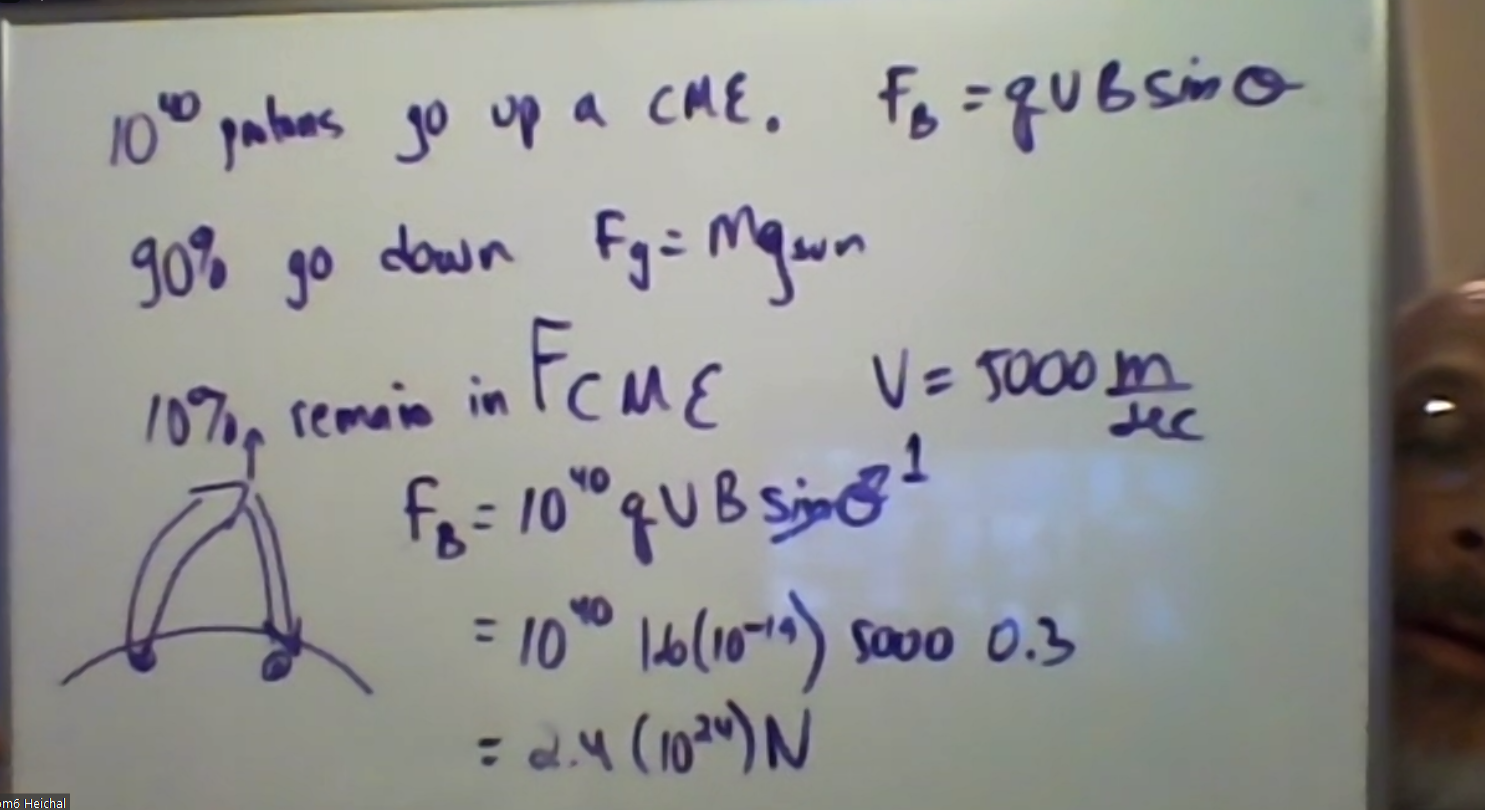 10⁴⁰ protons go up a CME. F_B = qVB sin θ
90% go down Fg = Mg sun
10% remain in F CME V = 5000 m/sec
F_B = 10⁴⁰ qVB sinθ 1
= 10⁴⁰ 1.6(10⁻¹⁹) 5000 0.3
= 2.4 (10²⁴) N
om6 Heichal